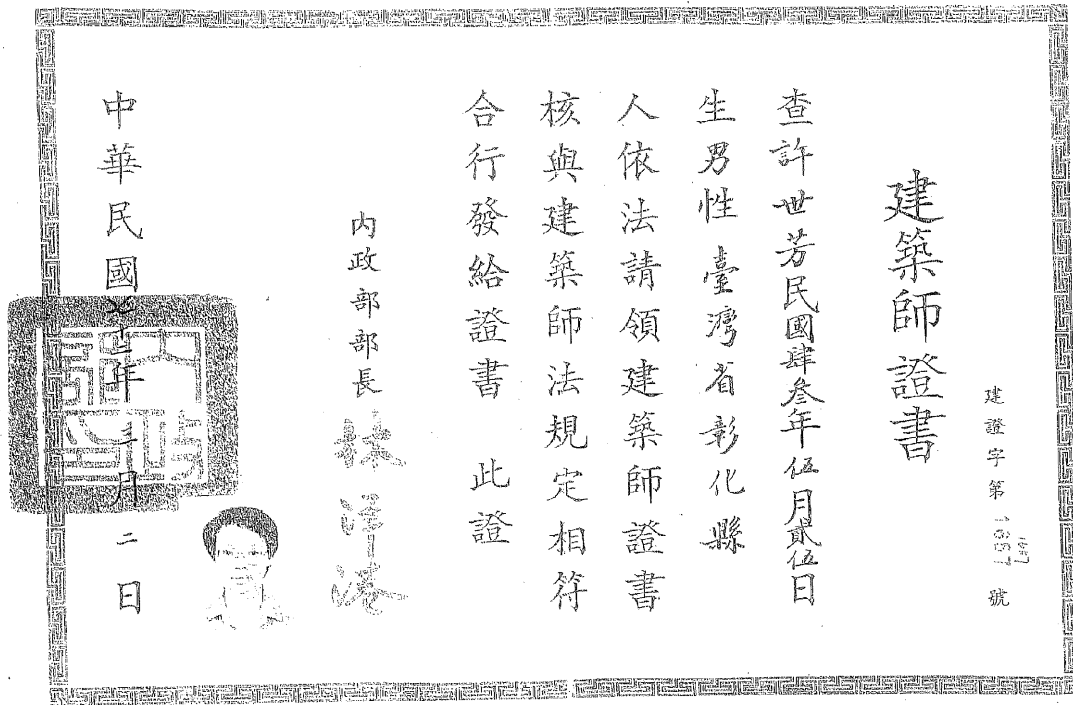 建築師證書
建證字第1667號
查許世芳民國肆叁年伍月貳伍日
生男性臺灣省彰化縣
人依法請領建築師證書
核與建築師法規定相符
合行發給證書 此證
內政部部長 林洋港
中華民國 年三月二日